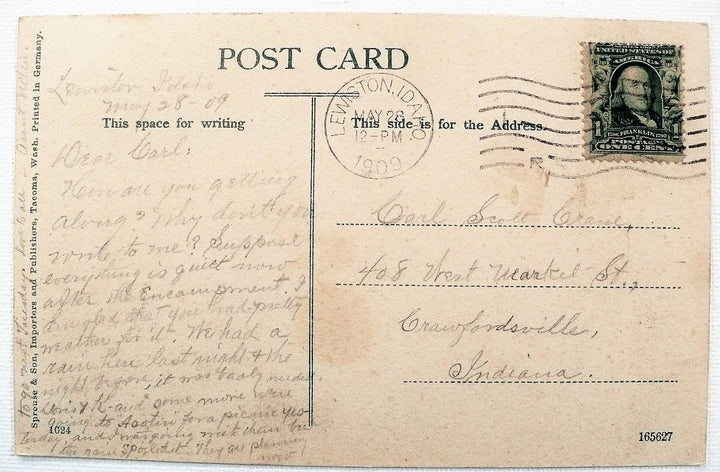 POST CARD
Lewiston Idaho
May 28-09
This space for writing
Dear Carl:
How are you getting
along? Why don't you
write to me? Suppose
everything is quiet now
after the Encampment. I
am glad that you had pretty
weather for it. We had a
rain here last night & the
night before, it was badly needed.
Doris & K- and some more were
going to Asotin for a picnic yes-
terday, and I was going with them but
the rain spoiled it. They are planning
now
to go next Tuesday. Love to all - Aunt
Sprouse & Son, Importers and Publishers, Tacoma, Wash. Printed in Germany.
1024
LEWISTON, IDAHO
MAY 28
12-PM
1909
UNITED STATES OF
AMERICA
1 FRANKLIN 1
POSTAGE
ONE CENT
This side is for the Address.
Carl Scott Crane,
408 West Market St.,
Crawfordsville,
Indiana.
165627